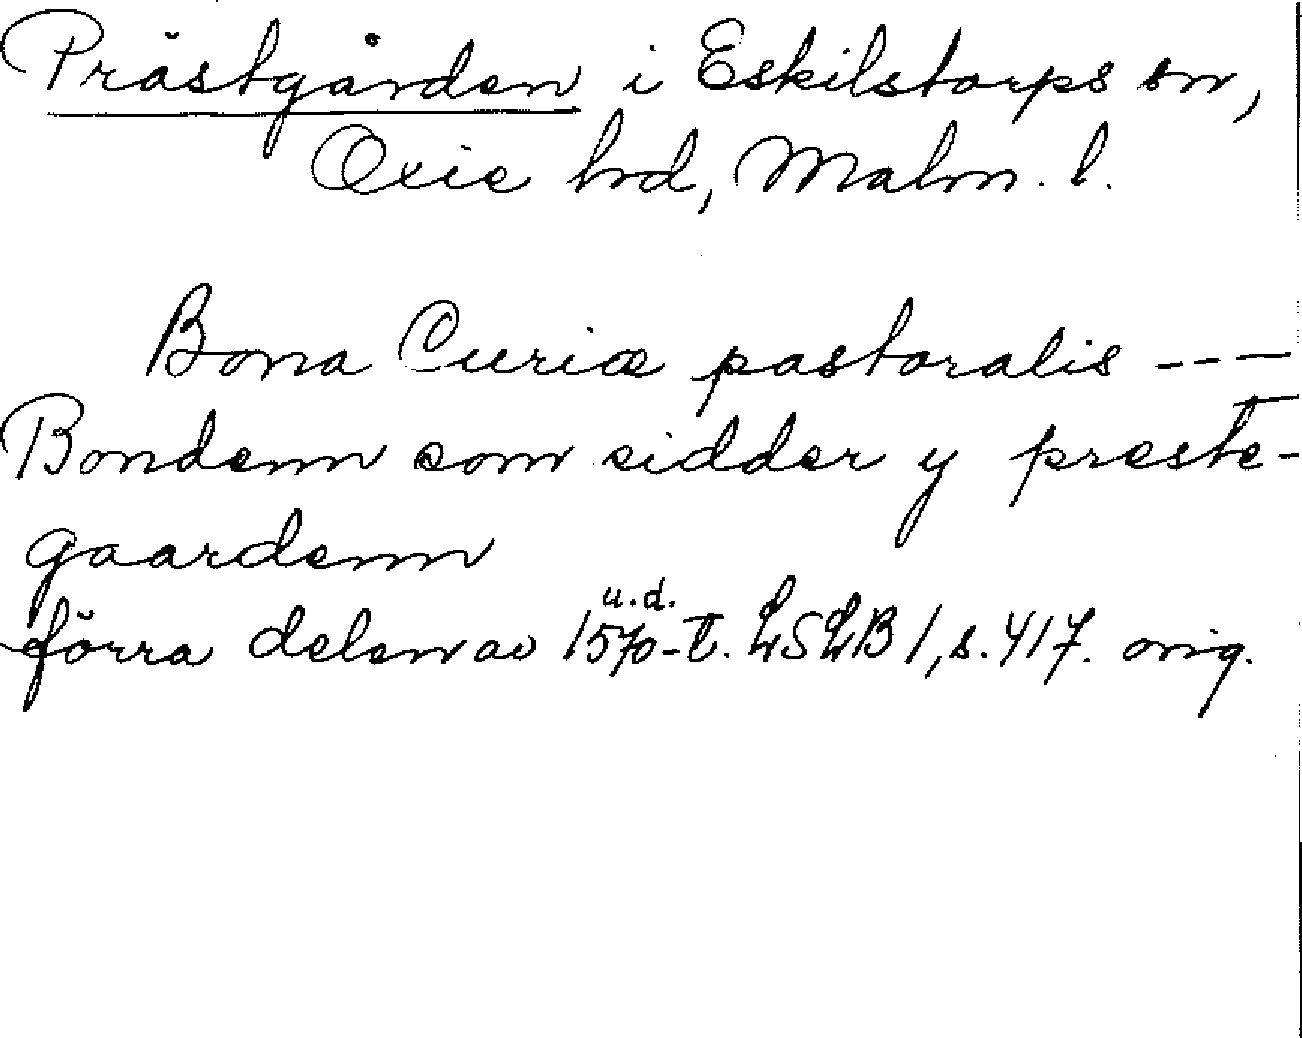 Prästgården i Eskilstorps sn,
Oxie hrd, Malm. l.
Bona Curiæ pastoralis ---
Bondenn som sidder y preste-
gaardenn
u.d.
förra delen av 1570-t. LSLB 1, s. 417. orig.